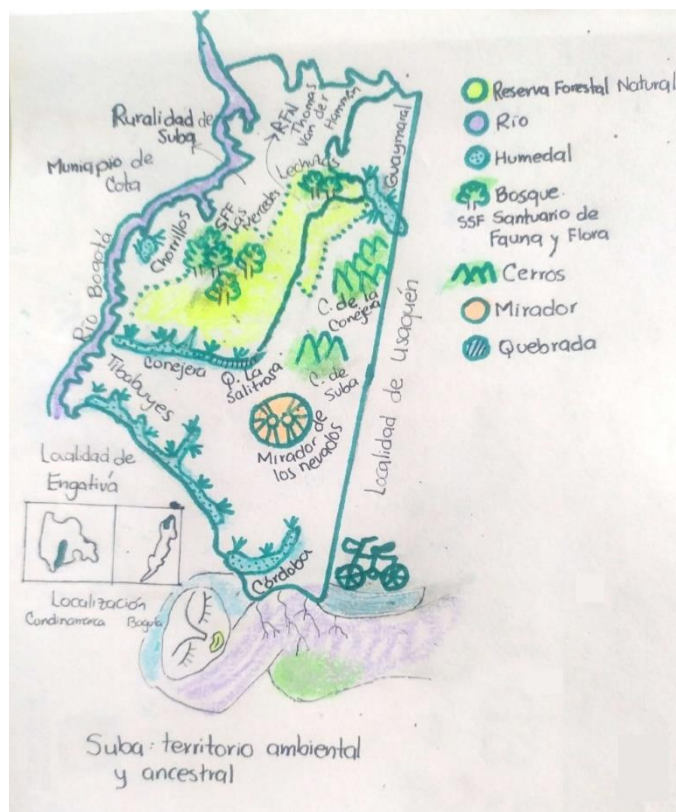 Ruralidad de
Suba
Municipio de
Cota
Río Bogotá
Chorrillos
SFF
Las
Mercedes
RFN
Thomas
Van der
Hammen
Lechuzas
Guaymaral
C. de la
Conejera
Conejera
Q. La
Salitrosa
C. de
Suba
Tibabuyes
Mirador de
los nevados
Localidad de Usaquén
Localidad de
Engativá
Córdoba
Localización
Condinamarca Bogotá
Reserva Forestal Natural
Río
Humedal
Bosque
SSF Santuario de
Fauna y Flora
Cerros
Mirador
Quebrada
Suba: territorio ambiental
y ancestral